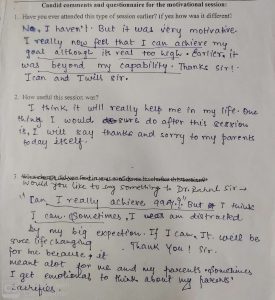 Candid comments and questionnaire for the motivational session:
1. Have you ever attended this type of session earlier? if yes how was it different?
No, I haven't. But it was very motivative.
I really now feel that I can achieve my
goal although its real too high. Earlier, it
was beyond my capability. Thanks Sir!
I can and I will sir.
2. How useful this session was?
I think it will really help me in my life. One
thing I would do sure do after this session
is, I will say thanks and sorry to my parents
today itself.
3.
Would you like to say something to Dr. Rahul Sir →
I can really achieve 99%? But I think
I can. Sometimes, I am distracted
by my big expection. If I can It will be
since life changing Thank You! Sir.
for me because it
meant alot for me and my parents. Sometimes
I get emotional to think about my parents'
sacrifies.